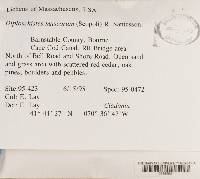 Lichens of Massachusetts, USA
Diploschistes muscorum (Scop.) R. Santesson.
Barnstable County, Bourne
Cape Cod Canal, RR Bridge area
North of Bell Road and Shore Road. Open sand
and grass area with scattered red cedar, oak
pines, boulders and pebbles.
Site: 95-423 6/15/95 Spec: 95-0472
Col: E. Lay
Det: E. Lay Cladonia
41° 41' 27" N 070° 36' 42" W